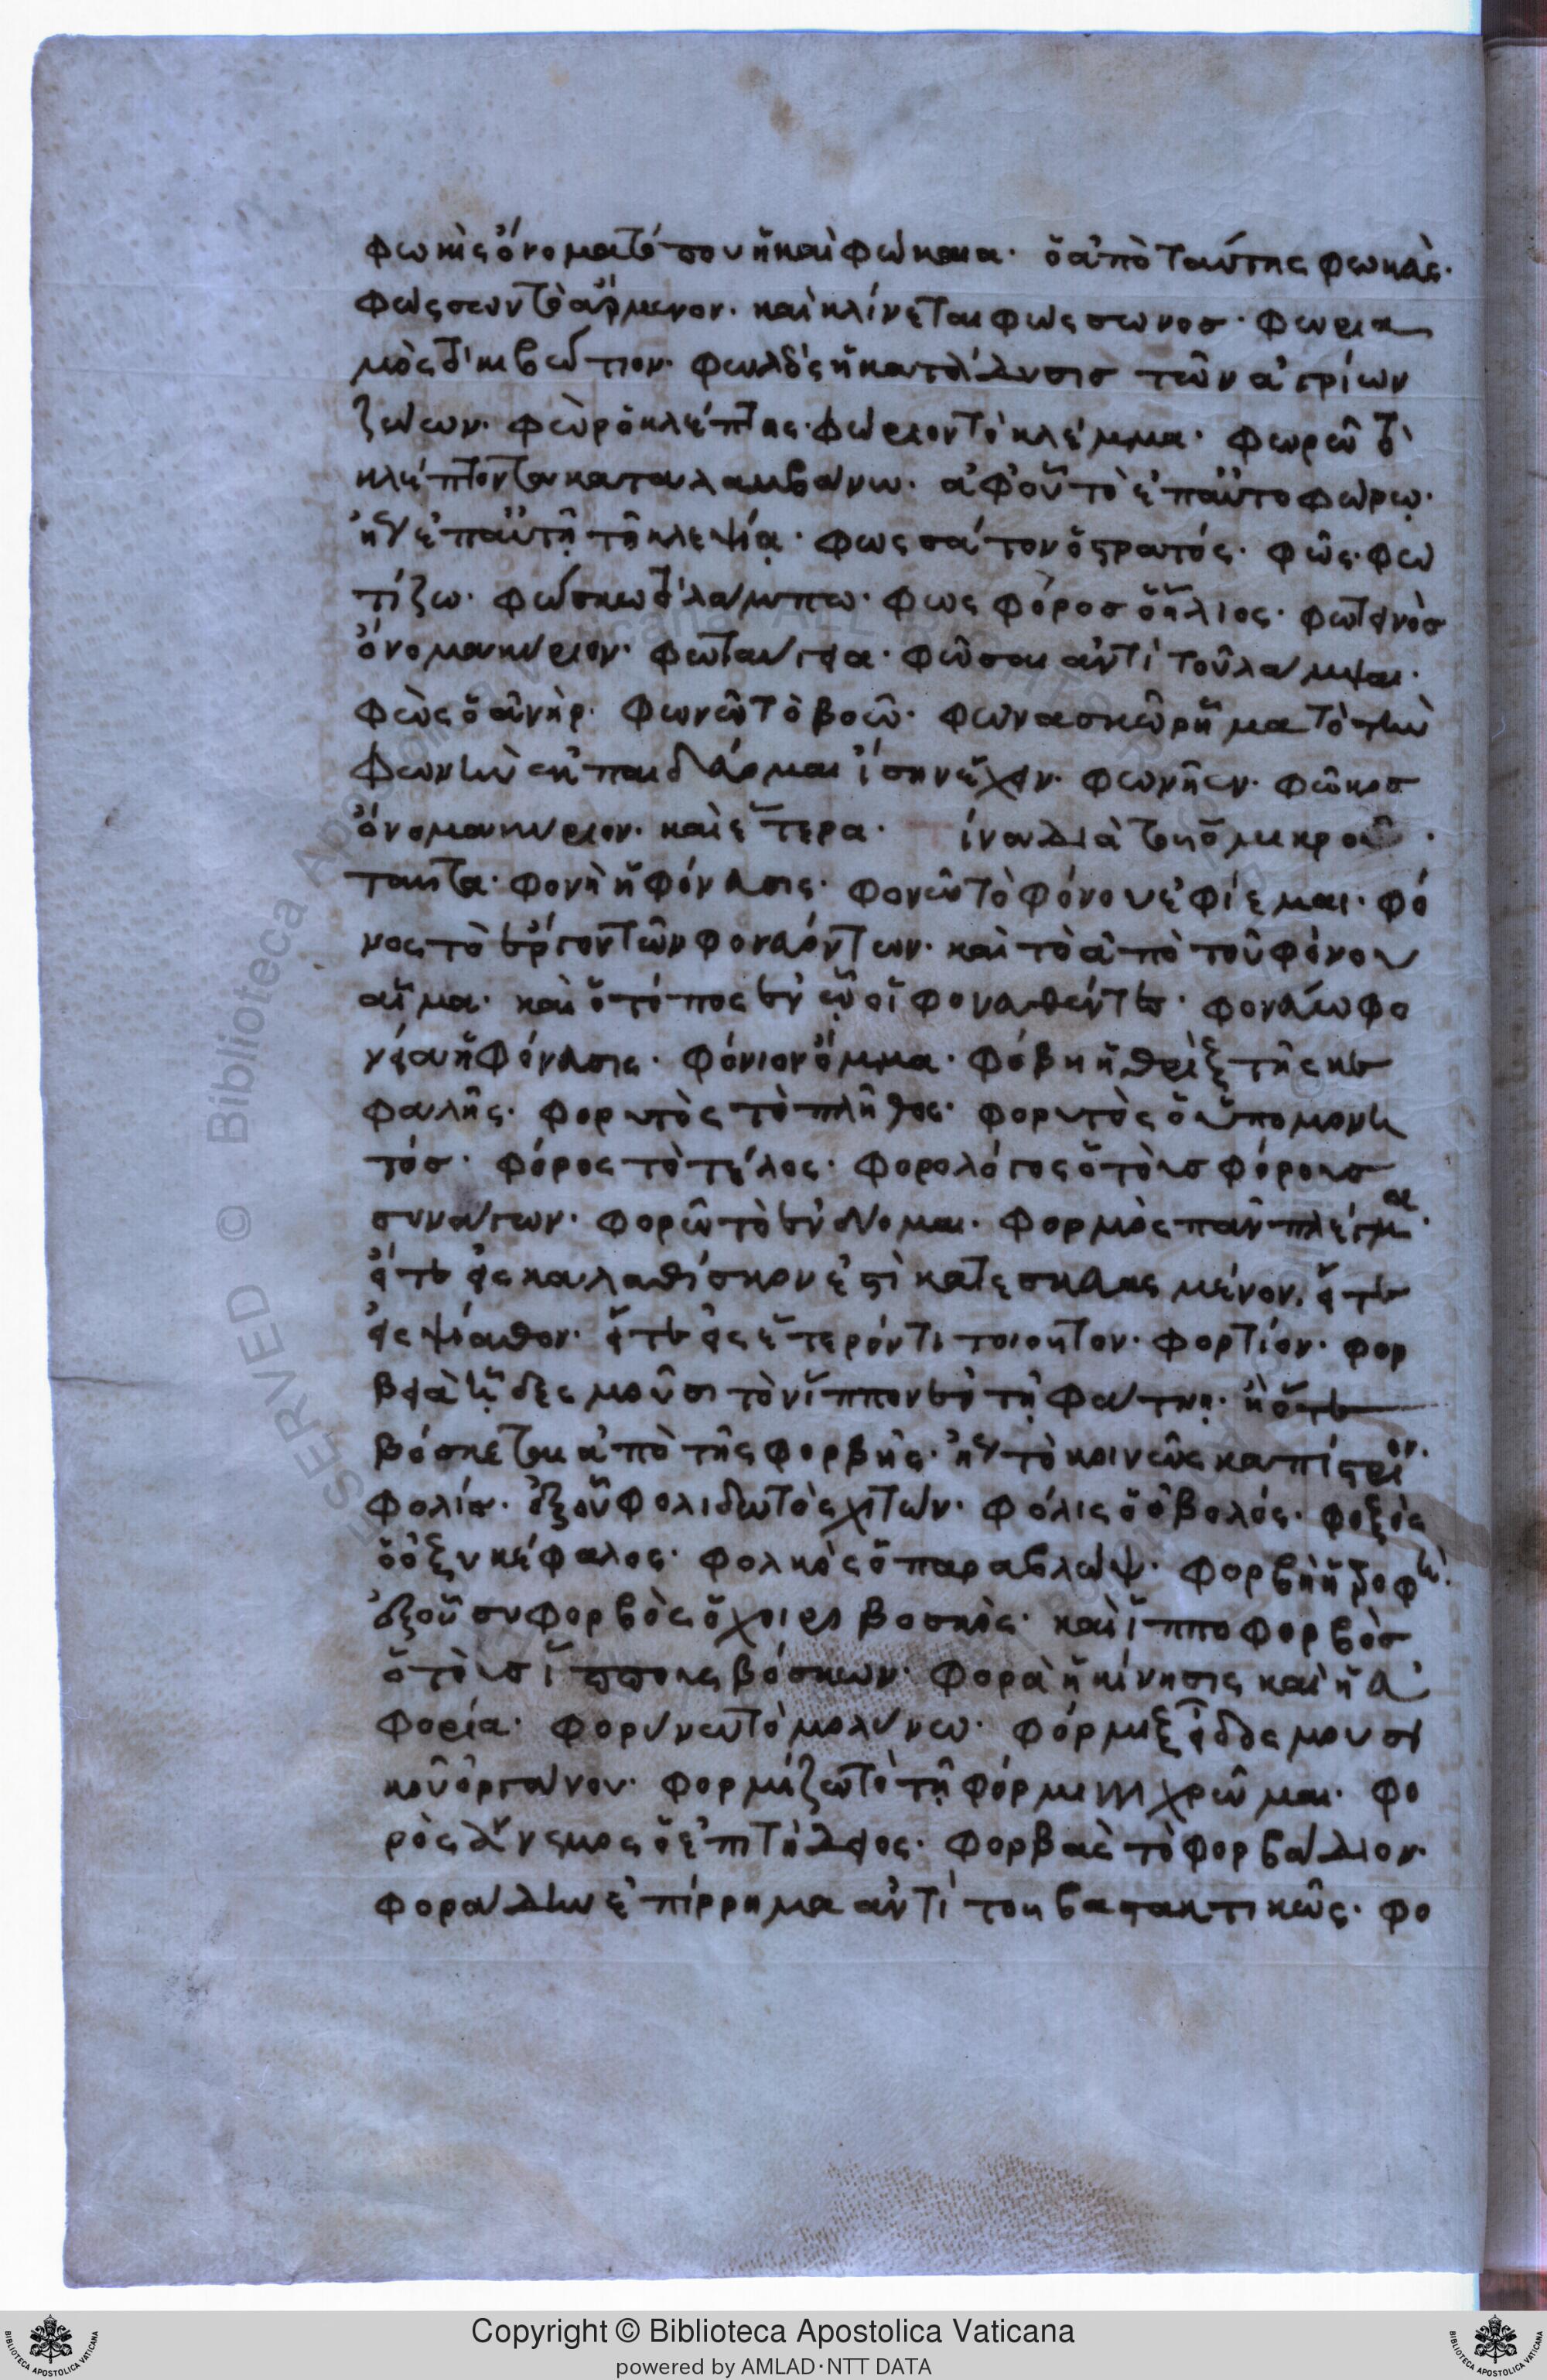 φωκὶς ὄνομα τόπου ἢ καὶ φώκαια· ὁ ἀπὸ ταύτης φωκαὲς·
φώσσων τὸ ἄρμενον· καὶ κλίνεται φώσσωνος· φωρια
μὸς τὸ κιβώτιον· φωλεὸς ἡ κατάλυσις τῶν ἀγρίων
ζώων· φὼρ ὁ κλέπτης· φώριον τὸ κλέμμα· φωρῶ τὸ
κλέπτοντα καταλαμβάνω· ἀφ' οὗ τὸ ἐπαυτοφώρῳ·
ἤγουν ἐπ' αὐτῇ τῇ κλεψίᾳ· φωσσάτον ὁ στρατός· φῶς· φω
τίζω· φώσκω τὸ λάμπω· φωσφόρος ὁ ἥλιος· φωτεινὸς
ὄνομα κύριον· φωταύγεια· φῶσαι ἀντὶ τοῦ λάμψαι·
φὼς ὁ ἀνὴρ· φωνῶ τὸ βοῶ· φωνασκῶ ῥῆμα τὸ τὴν
φωνὴν ἐκπαιδεύομαι ἰσηνέχειν· φωνῆεν· φῶκος
ὄνομα κύριον· καὶ ἕτερα· ἵνα διὰ τοῦ ο μικροῦ ·
ταῦτα· φονὴ ἡ φόνευσις· φονῶ τὸ φόνου ἐφίεμαι· φό
νος τὸ ἔργον τῶν φονευόντων· καὶ τὸ ἀπὸ τοῦ φόνου
αἷμα· καὶ ὁ τόπος ἐν ᾧ οἱ φονευθέντες· φονεύω φο
νεία ἡ φόνευσις· φόνιον ὄμμα· φόβη ἡ θρὶξ τῆς κε
φαλῆς· φορυτὸς τὸ πλῆθος· φορητὸς ὁ ὑπομονη
τός· φόρος τὸ τέλος· φορολόγος ὁ τοὺς φόρους
συνάγων· φορῶ τὸ ἐνδύομαι· φορμὸς πᾶν πλέγμα·
εἴτε εἰς καλαθίσκον ἐστὶ κατεσκευασμένον. εἴτε
εἰς ψίαθον· εἴτε εἰς ἕτερόν τι τοιοῦτον· φορτίον· φορ
βειὰ ᾗ δεσμοῦσι τὸν ἵππον ἐν τῇ φάτνῃ· ἢ ὅτε
βόσκεται ἀπὸ τῆς φορβῆς· ἤγουν τὸ κοινῶς καπίστριον·
φολίς· ἐξ οὗ φολιδωτὸς χιτών· φόλις ὁ ὀβολός· φοξὸς
ὁ ὀξυκέφαλος· φολκὸς ὁ παραβλώψ· φορβὴ ἡ τροφὴ·
ἐξ οὗ συφορβὸς ὁ χοιροβοσκὸς· καὶ ἱπποφορβὸς
ὁ τοὺς ἵππους βόσκων· φορὰ ἡ κίνησις καὶ ἡ εὐ
φορία· φορύνω τὸ μολύνω· φόρμιγξ εἶδος μουσι
κοῦ ὀργάνου· φορμίζω τὸ τῇ φόρμιγγι χρῶμαι· φο
ρὸς ἄνεμος ὁ ἐπιτήδειος· φορβαὲς τὸ φορβάδιον·
φοράδην ἐπίρρημα ἀντὶ τοῦ βαστακτικῶς· φο